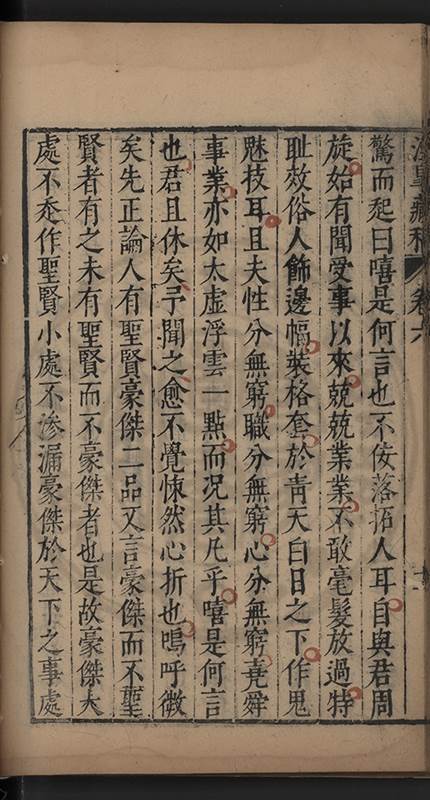 藏稿 卷六
驚而起曰嘻是何言也不佞落拓人耳自與君周
旋始有聞受事以來兢兢業業不敢毫髮放過特
耻效俗人飾邊幅裝格套於青天白日之下作鬼
魅技耳且夫性分無窮職分無窮心分無窮堯舜
事業亦如太虛浮雲一點而況其凡乎嘻是何言
也君且休矣予聞之愈不覺悚然心折也嗚呼微
矣先正論人有聖賢豪傑二品又言豪傑而不聖
賢者有之未有聖賢而不豪傑者也是故豪傑大
處不忝作聖賢小處不滲漏豪傑於天下之事處